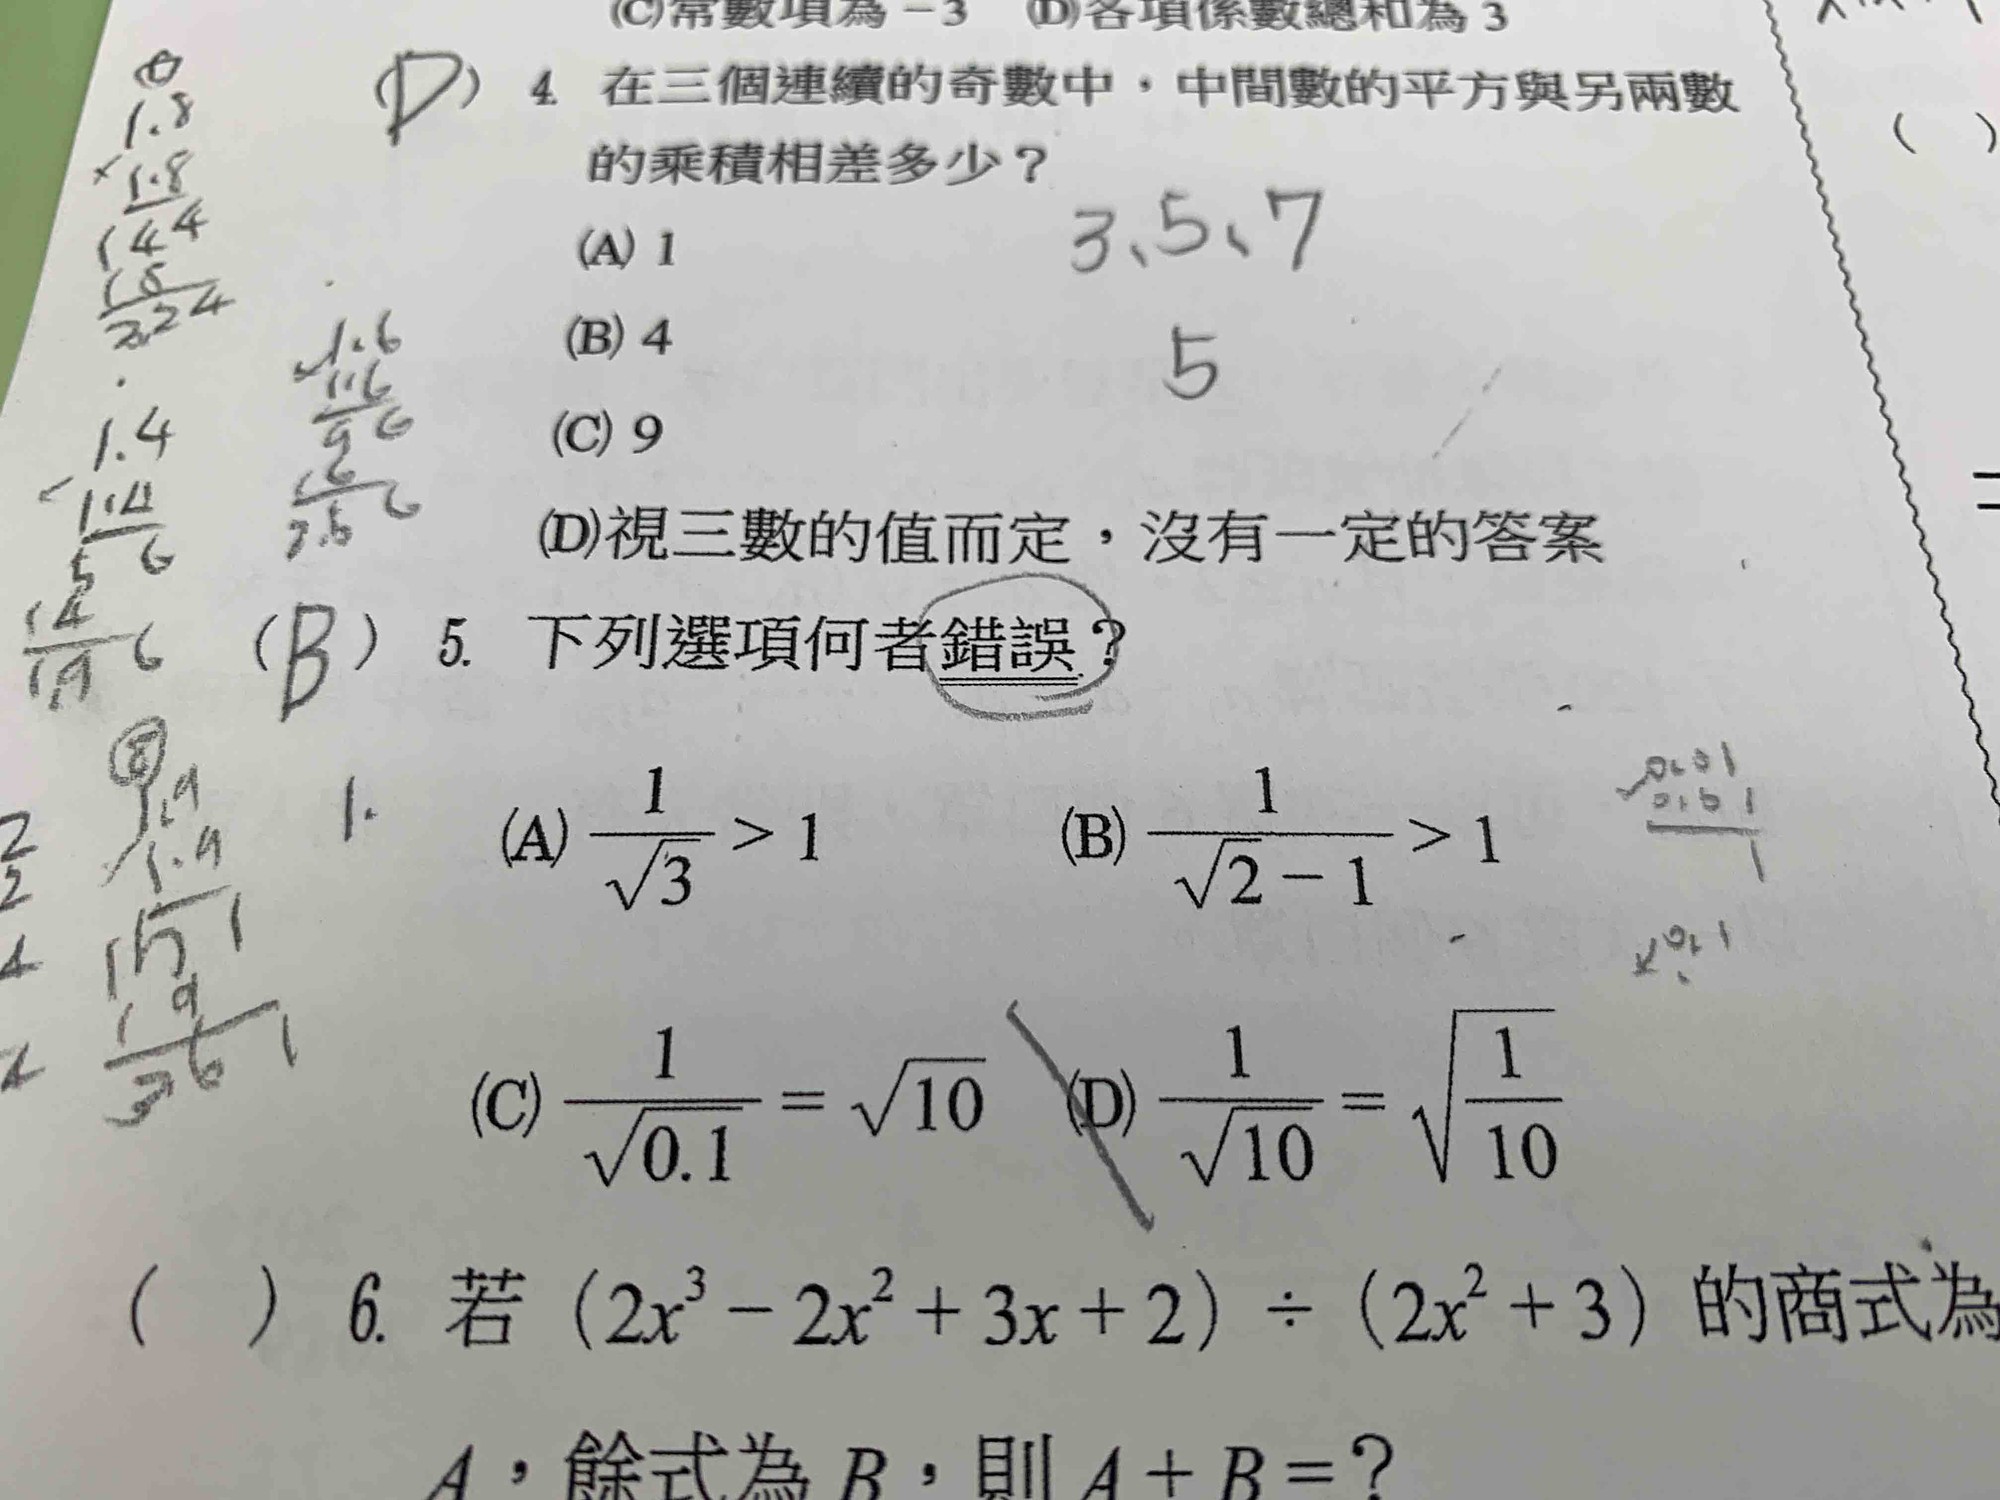 (C)常數項為－3 (D)各項係數總和為 3
(D) 4. 在三個連續的奇數中，中間數的平方與另兩數
的乘積相差多少？
(A) 1
3、5、7
(B) 4
5
(C) 9
(D)視三數的值而定，沒有一定的答案
(B) 5. 下列選項何者錯誤？
(A) 1/√3 > 1 (B) 1/(√2 − 1) > 1
(C) 1/√0.1 = √10 (D) 1/√10 = √(1/10)
( ) 6. 若（2x³ − 2x² + 3x + 2）÷（2x² + 3）的商式為
A，餘式為 B，則 A + B =？
1.8
×1.8
144
18
3.24
1.6
1.6
96
16
2.56
1.4
1.4
56
14
1.96
1.9
1.9
171
19
361
1.
0.01